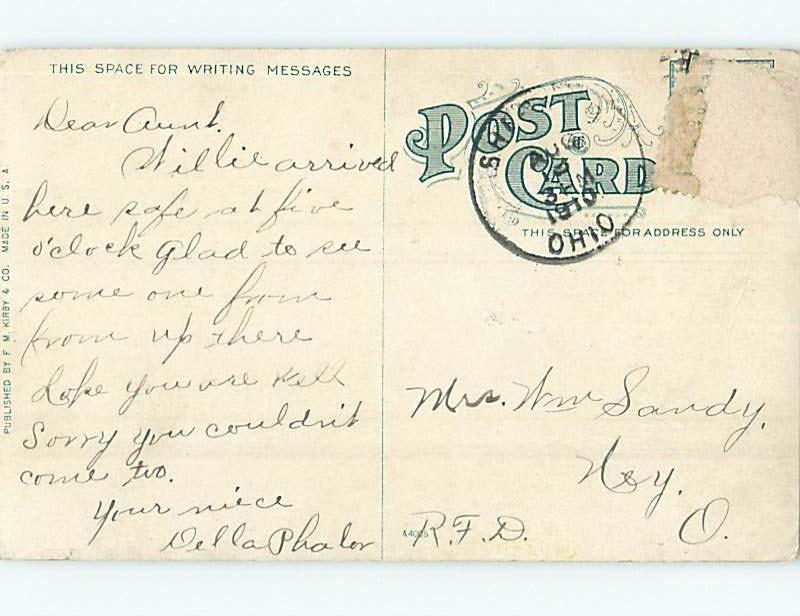 THIS SPACE FOR WRITING MESSAGES
Dear Aunt.
Willie arrived
here safe at five
o'clock glad to see
some one from
from up there
Hope you are well
Sorry you couldn't
come two.
Your niece
Della Phalor
PUBLISHED BY F. M. KIRBY & CO. MADE IN U. S. A.
POST CARD
THIS SPACE FOR ADDRESS ONLY
AUG
1910
OHIO
Mrs. Wm Sandy,
Ney,
O.
R.F.D.